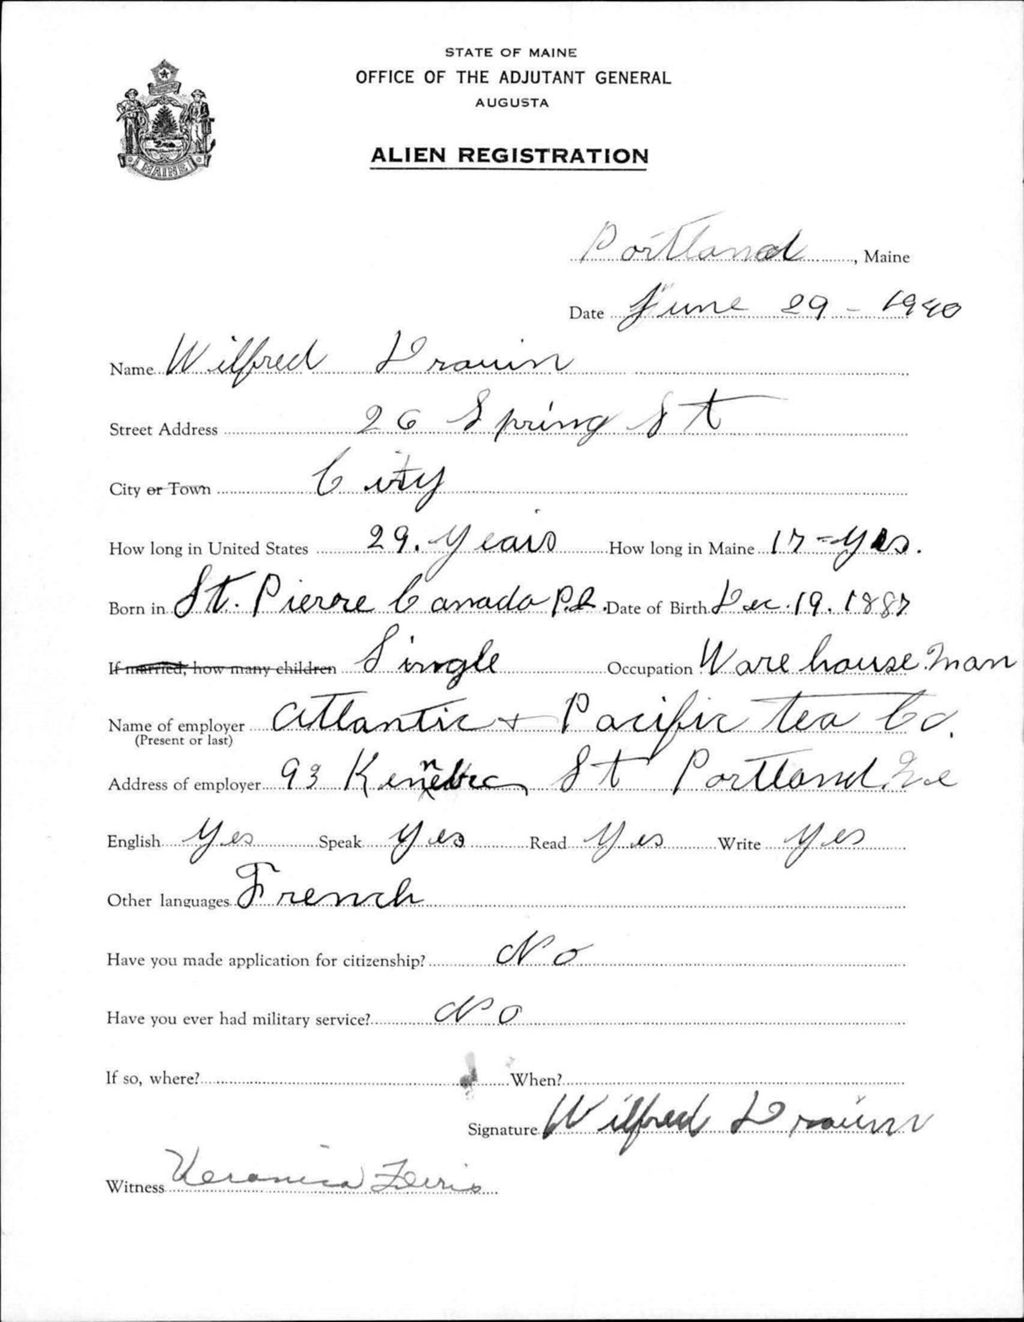 STATE OF MAINE
OFFICE OF THE ADJUTANT GENERAL
AUGUSTA
ALIEN REGISTRATION
MAINE
Portland, Maine
Date June 29 - 1940
Name Wilfred Drouin
Street Address 26 Spring St
City or Town City
How long in United States 29. Years How long in Maine 17 - Yrs.
Born in St. Pierre Canada P.Q. Date of Birth Dec. 19. 1887
If married, how many children Single Occupation Warehouse Man
Name of employer Atlantic + Pacific tea Co.
(Present or last)
Address of employer 93 Kennebec St Portland. Me
English Yes Speak Yes Read Yes Write Yes
Other languages French
Have you made application for citizenship? No
Have you ever had military service? No
If so, where? When?
Signature Wilfred Drouin
Witness Veronica Ferris